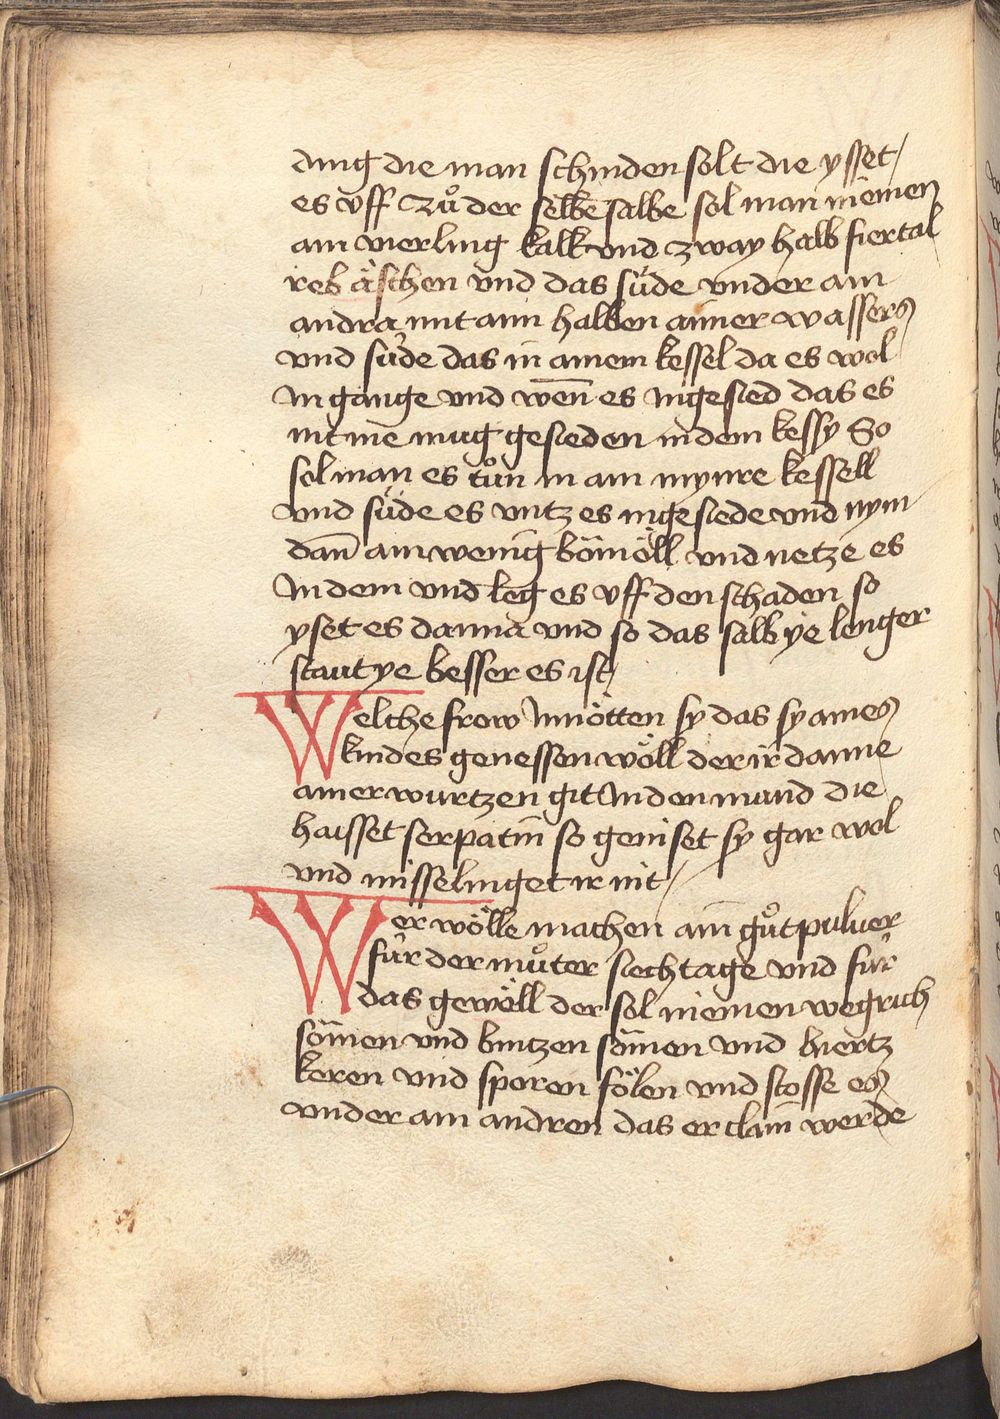 ding die man schinden solt die ysset /
es vff Zuͦ der selbē salbe sol man niemen
ain vierling kalk vnd zway halb fiertal
reb äschen vnd das süde vnder ain
andra mit aim halben aimer wassers
vnd süde das in ainem kessel da es wol
In gange vnd weñ es Ingesied das es
nit me mug gesieden in dem kessy So
sol man es tuͦn in ain mynre kessell
vnd süde es vntz es ingesiede vnd nym
dañ ain wenig bömöll vnd netze es
In dem vnd leg es vff den schaden so
yset es danna vnd so das salb ye lenger
staut ye besser es ist /
Welche frow Innötten sy das sy aines
kindes genessen wöll der ir danne
ainer wurtzen git In den mund die
haisset serpatin so geniset sy gar wol
vnd misselinget ir nit /
Wer wölle machen ain guͦt puluer
für der muͦter siechtage vnd für
das gewöll der sol niemen wegrich
sömen vnd bintzen sömen vnd hiertz
keren vnd sporen fölen vnd stosse es
vnder ain andren das er clain werde